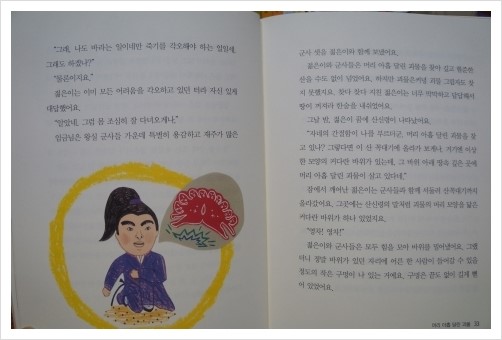 "그래, 나도 바라는 일이네만 죽기를 각오해야 하는 일일세.
그래도 하겠나?"
"물론이지요."
젊은이는 이미 모든 어려움을 각오하고 있던 터라 자신 있게
대답했어요.
"알았네. 그럼 몸 조심히 잘 다녀오게나."
임금님은 왕실 군사들 가운데 특별히 용감하고 재주가 많은
군사 셋을 젊은이와 함께 보냈어요.
젊은이와 군사들은 머리 아홉 달린 괴물을 찾아 깊고 험준한
산을 수도 없이 넘었어요. 하지만 괴물은커녕 괴물 그림자도 보
지 못했지요. 찾다 찾다 지친 젊은이는 너무 막막하고 답답해서
땅이 꺼져라 한숨을 내쉬었어요.
그날 밤, 젊은이 꿈에 산신령이 나타났어요.
"자네의 간절함이 나를 부르더군. 머리 아홉 달린 괴물을 찾
고 있나? 그렇다면 이 산 꼭대기에 올라가 보게나. 거기엔 이상
한 모양의 커다란 바위가 있는데, 그 바위 아래 땅속 깊은 곳에
머리 아홉 달린 괴물이 살고 있다네."
잠에서 깨어난 젊은이는 군사들과 함께 서둘러 산꼭대기까지
올라갔어요. 그곳에는 산신령의 말처럼 괴물의 머리 모양을 닮은
커다란 바위가 하나 있었지요.
"영차! 영차!"
젊은이와 군사들은 모두 힘을 모아 바위를 밀어냈어요. 그랬
더니 정말 바위가 있던 자리에 어른 한 사람이 들어갈 수 있을
정도의 작은 구멍이 나 있는 거예요. 구멍은 끝도 없이 깊게 뻗
어 있었어요.
머리 아홉 달린 괴물 33